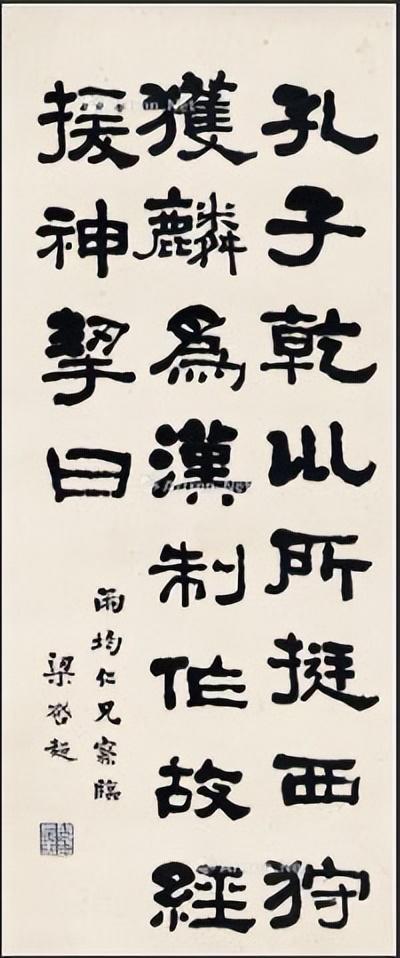 孔子乾巛所挺西狩
獲麟為漢制作故經
援神挈曰
雨均仁兄察臨
梁啓超